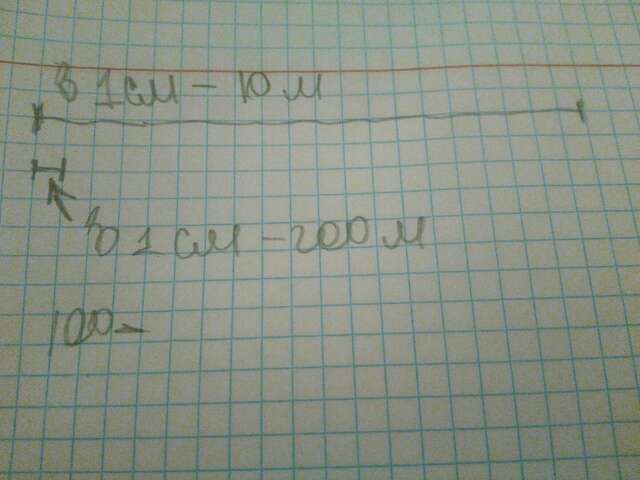 в 1 см – 10 м
в 1 см – 200 м
100 –